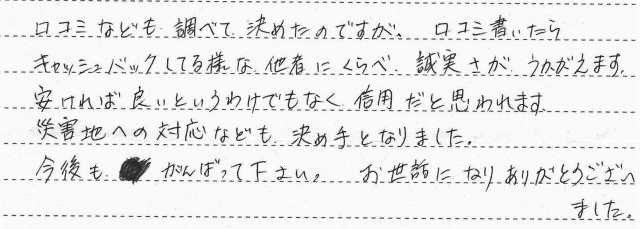 口コミなども 調べて 決めたのですが、 口コミ書いたら
キャッシュバックしてる様な 他者にくらべ 誠実さが うかがえます.
安ければ 良いというわけでもなく 信用だと思われます
災害地への 対応なども 決め手となりました。
今後も がんばって下さい。 お世話になりありがとうござい
ました。